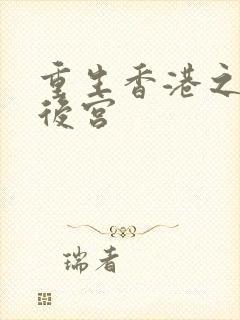 重生香港之
後宮
瑞者